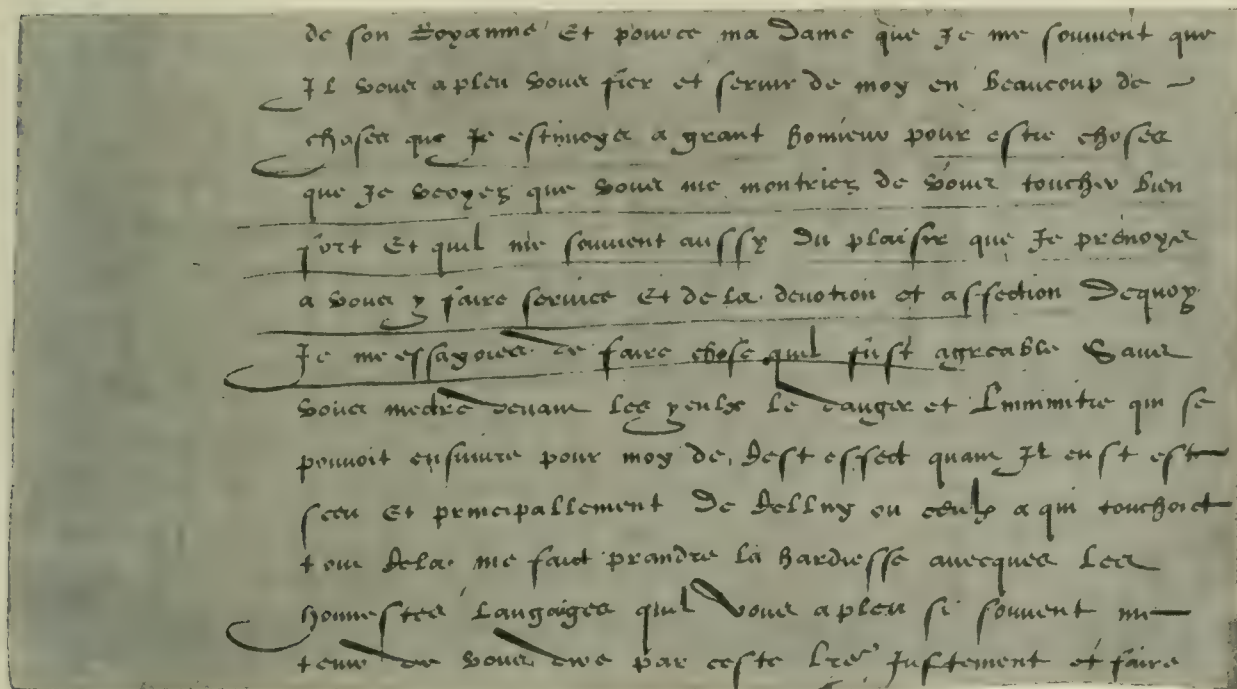 de son Royaume Et pource ma Dame que Je me souvient que
Il vous a pleu vous fier et servir de moy en beaucoup de
choses que Je estimoys a grant honneur pour estre choses
que Je veoyez que vous me montriez de vous toucher bien
fort Et quil me souvient aussy du plaisir que Je prenoys
a vous y faire service Et de la devotion et affection Dequoy
Je me essayoies de faire chose quil fust agreable Sans
vous mectre devant les yeulx le danger et Linimitie qui se
pouvoit ensuivre pour moy de cest effect quant Il eust este
sceu Et principallement De celluy ou ceulx a qui touchoict
tout cela me faict prandre la hardiesse avecques les
honnestes langaiges quil vous a pleu si souvent me
tenir de vous dire par ceste lre Justement et faire